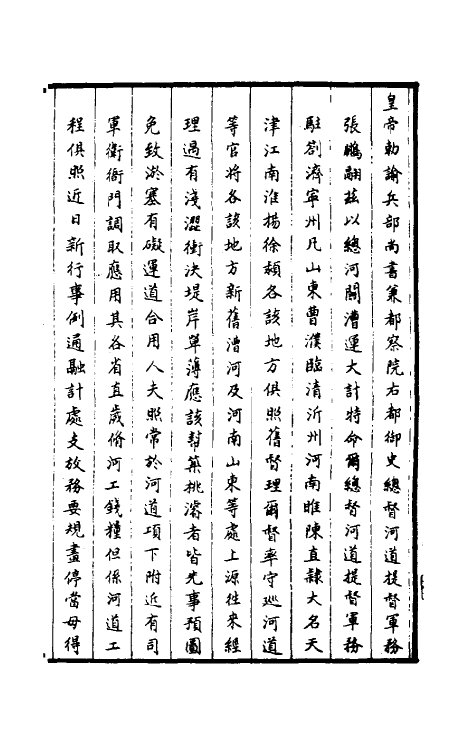 皇帝勅諭兵部尚書兼都察院右都御史總督河道提督軍務
張鵬翮茲以總河關漕運大計特命爾總督河道提督軍務
駐劄濟寧州凡山東曹濮臨清沂州河南睢陳直隸大名天
津江南淮揚徐潁各該地方俱照舊督理爾督率守巡河道
等官將各該地方新舊漕河及河南山東等處上源徃來經
理遇有淺澀衝決堤岸單薄應該幇築挑濬者皆先事預圖
免致淤塞有礙運道合用人夫照常於河道項下附近有司
軍衛衙門調取應用其各省直歲脩河工錢糧但係河道工
程俱照近日新行事例通融計處支放務要規畫停當毋得